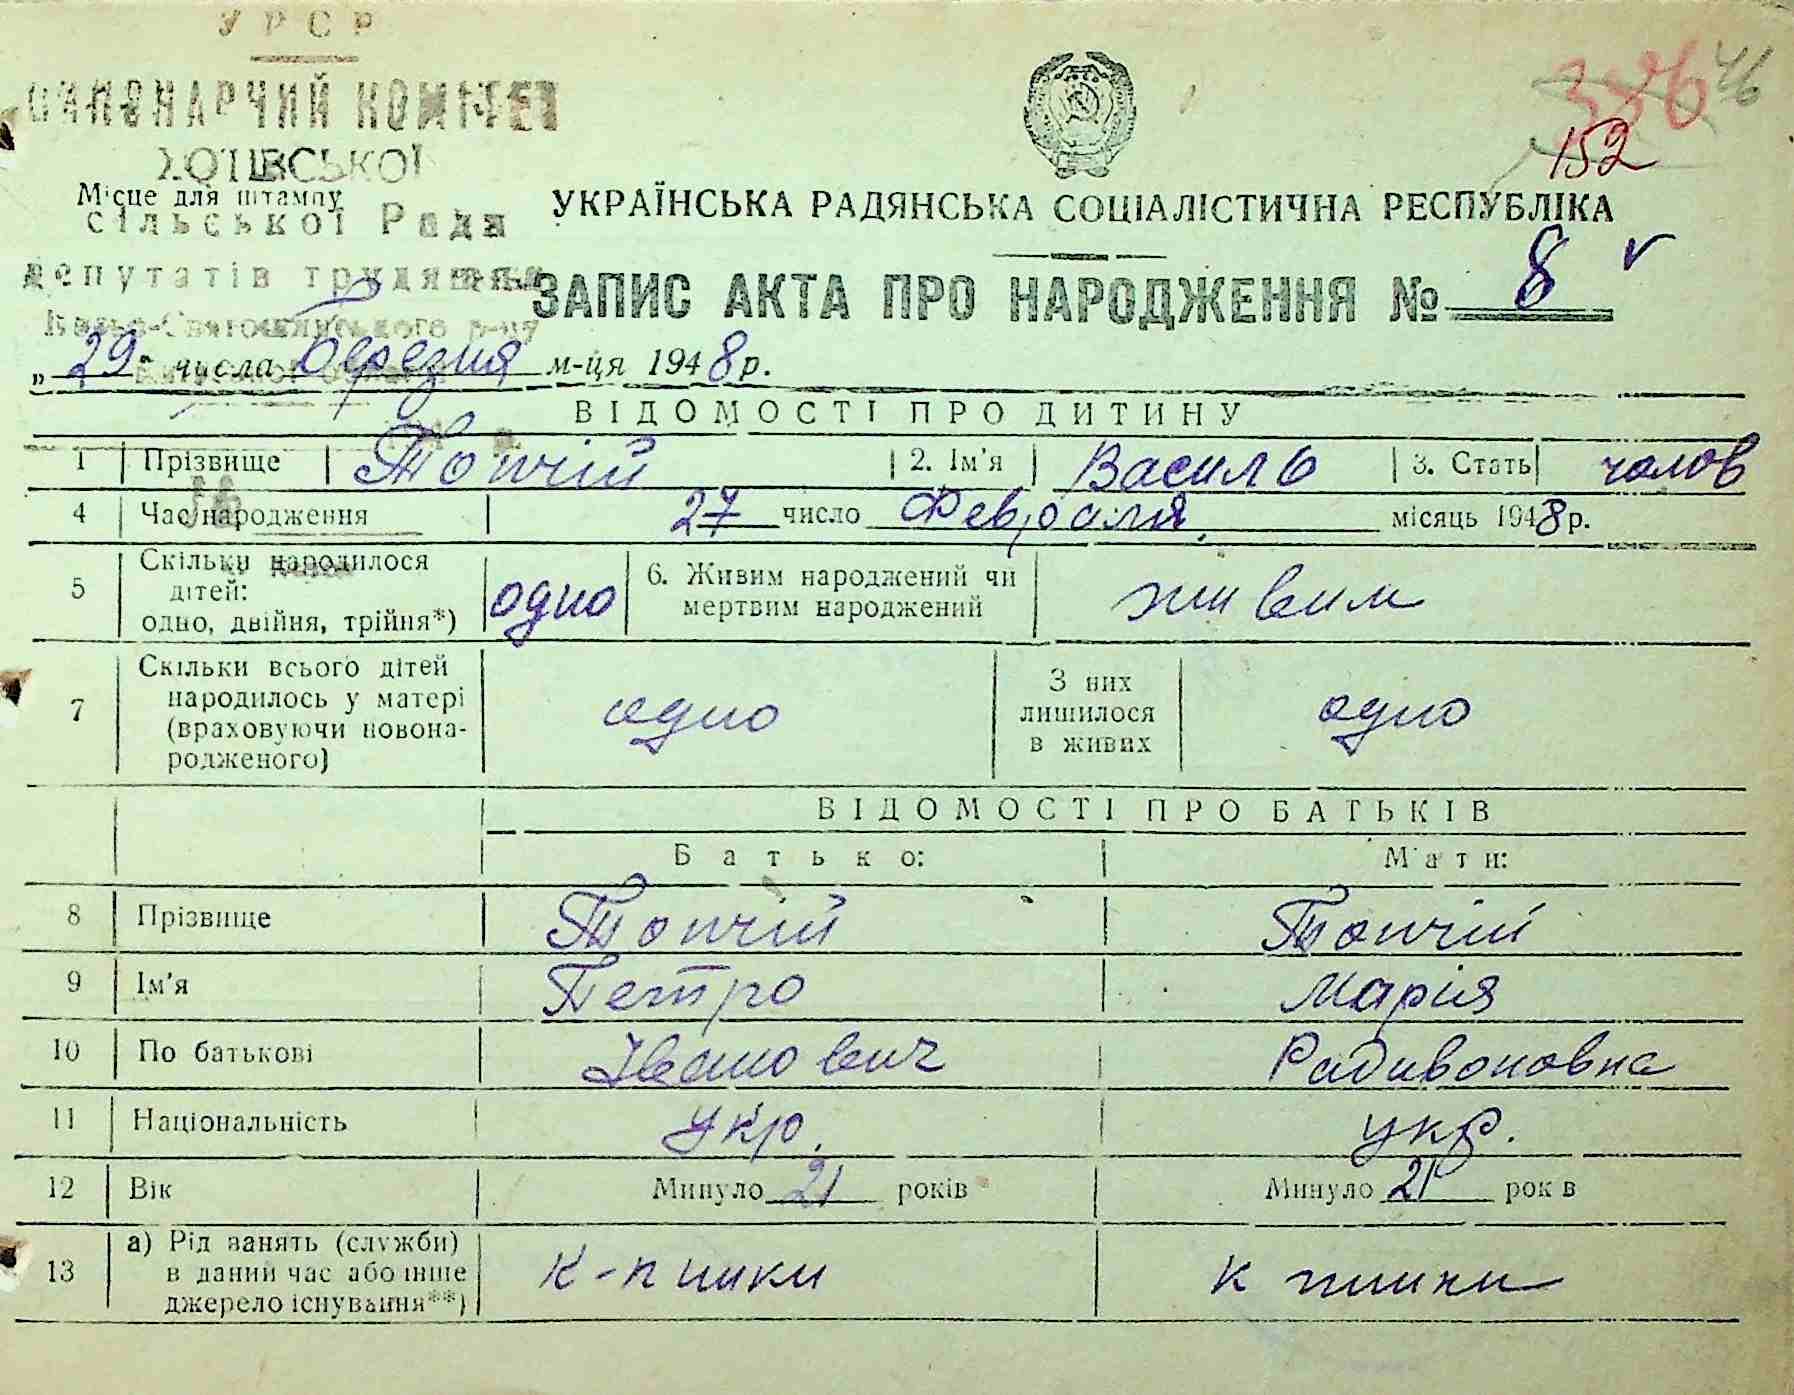 УРСР
ВИКОНАВЧИЙ КОМІТЕТ
ХОТІВСЬКОЇ
Місце для штампу
сільської Ради
депутатів трудящих
Києво-Святошинського р-ну
386 46
152
УКРАЇНСЬКА РАДЯНСЬКА СОЦІАЛІСТИЧНА РЕСПУБЛІКА
ЗАПИС АКТА ПРО НАРОДЖЕННЯ № 8
„29" числа Березня м-ця 1948 р.
ВІДОМОСТІ ПРО ДИТИНУ
1 Прізвище Топчій 2. Ім'я Василь 3. Стать чолов
4 Час народження 27 число Февраля місяць 1948 р.
5 Скільки народилося дітей: одно, двійня, трійня*) одно 6. Живим народжений чи мертвим народжений живим
7 Скільки всього дітей народилось у матері (враховуючи новонародженого) одно З них лишилося в живих одно
ВІДОМОСТІ ПРО БАТЬКІВ
Батько: Мати:
8 Прізвище Топчій Топчій
9 Ім'я Петро Марія
10 По батькові Іванович Радивоновна
11 Національність укр. укр.
12 Вік Минуло 21 років Минуло 21 рок в
13 а) Рід занять (служби) в даний час або інше джерело існування**) к-пники к пники